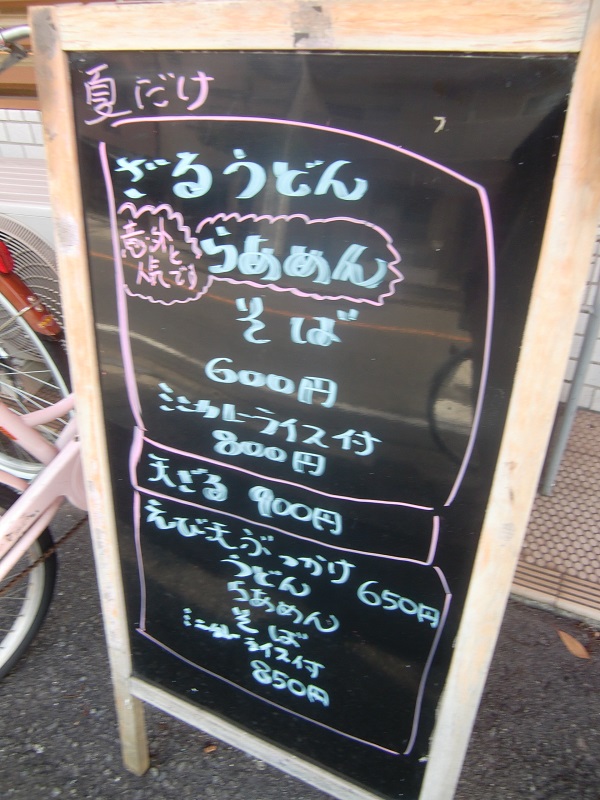 夏だけ
ざるうどん
意外と
人気です
らぁめん
そば
600円
ミニカレーライス付
800円
天ざる 900円
えび天ぶっかけ
うどん 650円
らぁめん
そば
ミニカレーライス付
850円